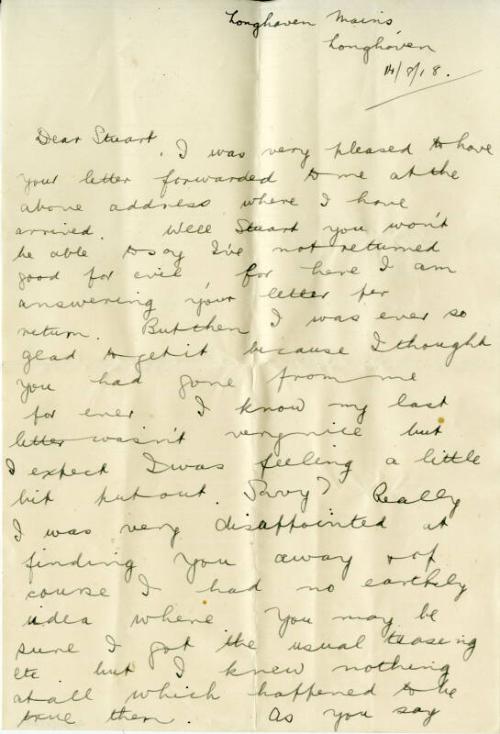 Longhaven Mains,
Longhaven
14/8/18.
Dear Stuart,
I was very pleased to have
your letter forwarded to me at the
above address where I have
arrived. Well Stuart you won't
be able to say I've not returned
good for evil, for here I am
answering your letter per
return. But then I was ever so
glad to get it because I thought
you had gone from me
for ever I know my last
letter wasn't very nice but
I expect I was feeling a little
bit put out. Savvy? Really
I was very disappointed at
finding you away & of
course I had no earthly
idea where you may be
sure I got the usual teasing
etc. but I knew nothing
at all which happened to be
true then. As you say